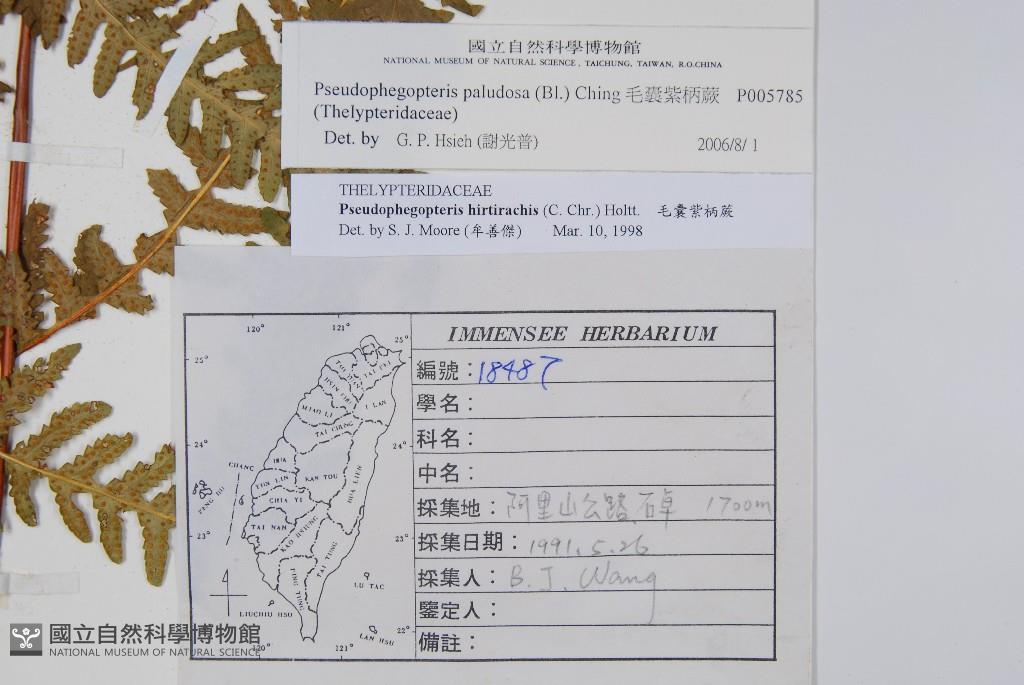 國立自然科學博物館
NATIONAL MUSEUM OF NATURAL SCIENCE, TAICHUNG, TAIWAN, R.O.CHINA
Pseudophegopteris paludosa (Bl.) Ching 毛囊紫柄蕨 P005785
(Thelypteridaceae)
Det. by G. P. Hsieh (謝光普) 2006/8/1
THELYPTERIDACEAE
Pseudophegopteris hirtirachis (C. Chr.) Holtt. 毛囊紫柄蕨
Det. by S. J. Moore (牟善傑) Mar. 10, 1998
IMMENSEE HERBARIUM
編號：18487
學名：
科名：
中名：
採集地：阿里山公路 石卓 1700m
採集日期：1991.5.26
採集人：B. J. Wang
鑒定人：
備註：
120° 121°
25° 25°
TAI PEI
I LAN
MIAO LI
TAI CHUNG
24° 24°
CHANG HUA
NAN TOU
HUA LIEN
YUN LIN
PENG HU
CHIA YI
TAI NAN
23° 23°
KAO HSIUNG
TAI TUNG
PING TUNG
LU TAO
LIUCHIU HSU
LAN HSU
22°
120° 121°
國立自然科學博物館
NATIONAL MUSEUM OF NATURAL SCIENCE